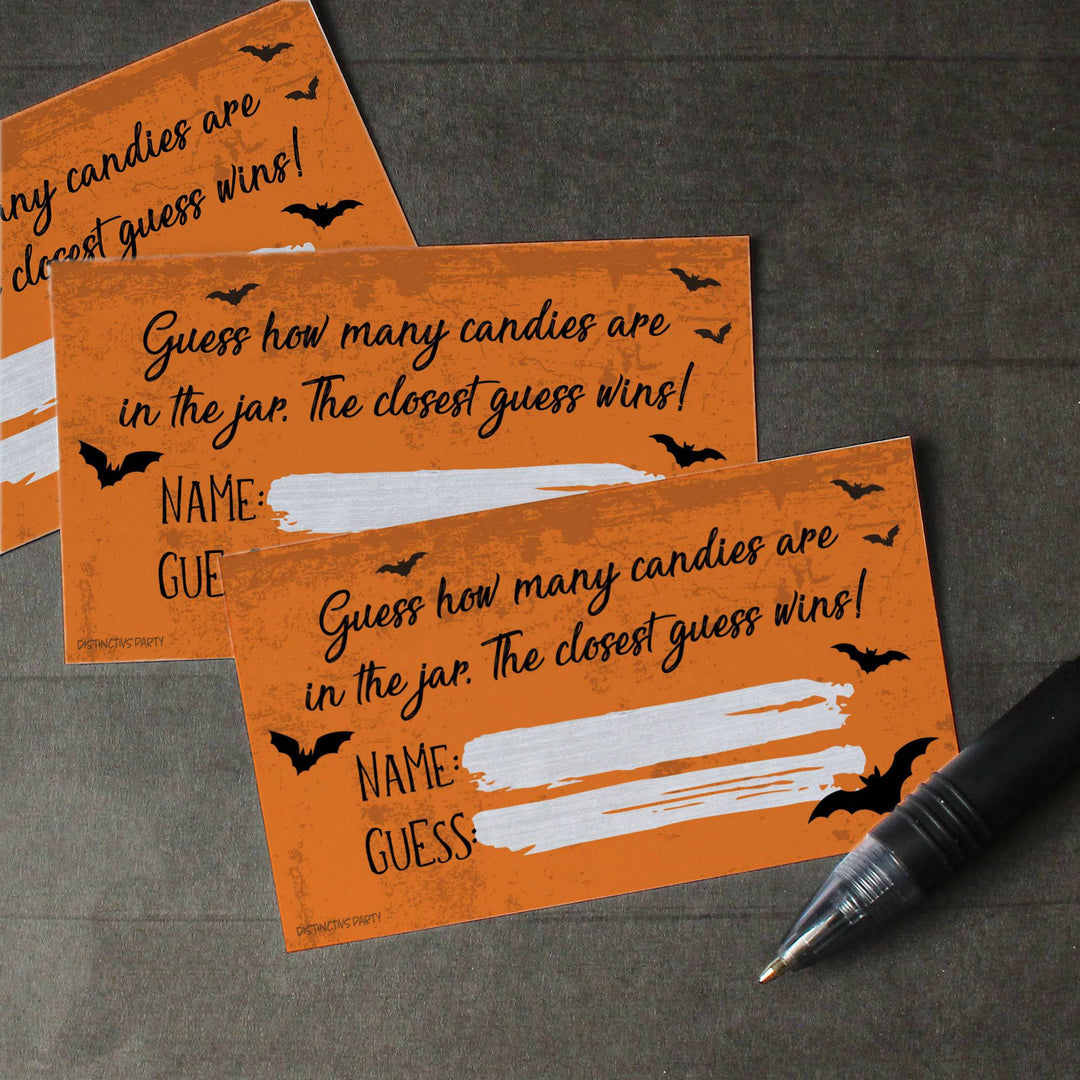 any candies are
closest guess wins!
Guess how many candies are
in the jar. The closest guess wins!
NAME:
GUE
DISTINCTIVS PARTY
Guess how many candies are
in the jar. The closest guess wins!
NAME:
GUESS:
DISTINCTIVS PARTY